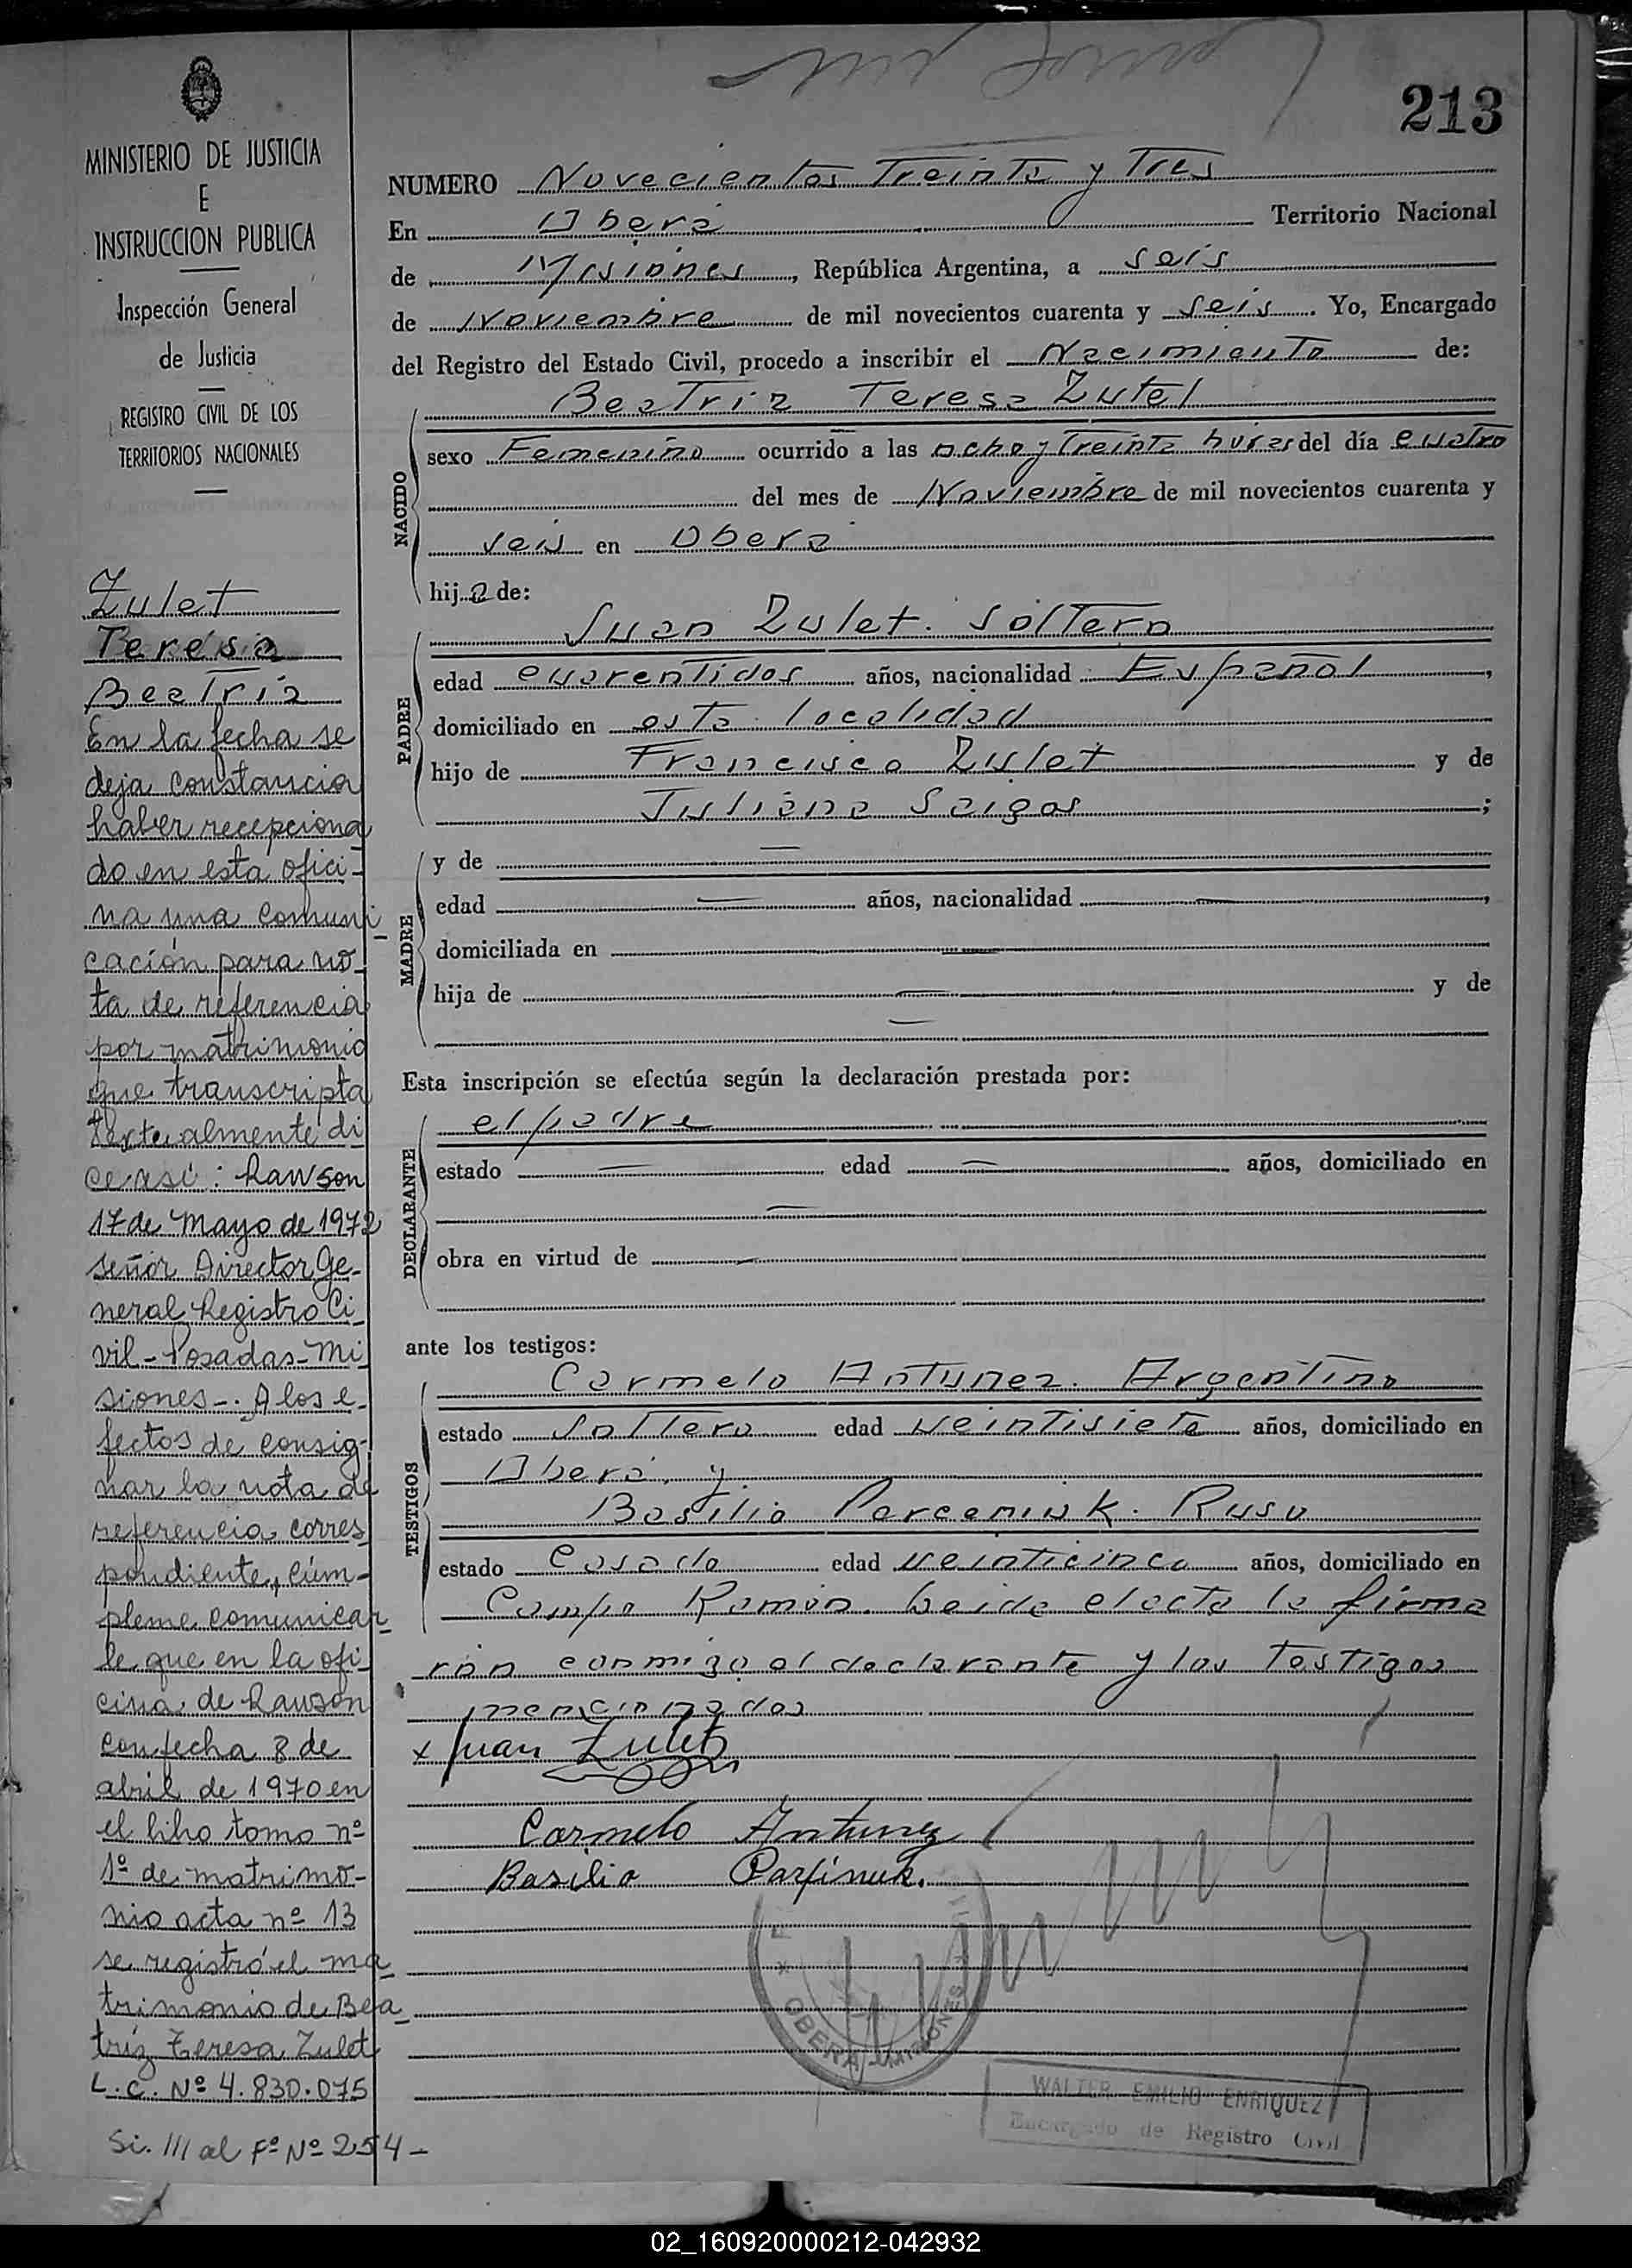 213
MINISTERIO DE JUSTICIA
E
INSTRUCCION PUBLICA
Inspección General
de Justicia
REGISTRO CIVIL DE LOS
TERRITORIOS NACIONALES
Zulet
Teresa
Beatriz
En la fecha se
deja constancia
haber recepciona
do en esta ofici-
na una comuni-
cación para no-
ta de referencia
por matrimonio
que transcripta
textualmente di
ce así: Rawson
17 de Mayo de 1972
señor Director Ge-
neral Registro Ci-
vil - Posadas - Mi-
siones -. A los e-
fectos de consig-
nar la nota de
referencia corres
pondiente, cúm-
pleme comunicar-
le que en la ofi-
cina de Rawson
con fecha 8 de
abril de 1970 en
el libro tomo nº
1º de matrimo-
nio acta nº 13
se registró el ma-
trimonio de Bea-
tríz Teresa Zulet
L.C. Nº 4.830.075
Si. /// al Fº Nº 254-
NUMERO Novecientos Treinta y Tres
En Oberá Territorio Nacional
de Misiones, República Argentina, a seis
de Noviembre de mil novecientos cuarenta y seis. Yo, Encargado
del Registro del Estado Civil, procedo a inscribir el Nacimiento de:
NACIDO
Beatriz Teresa Zutel
sexo Femenino ocurrido a las ocho y treinta horas del día cuatro
del mes de Noviembre de mil novecientos cuarenta y
seis en Obera
hija de:
PADRE
Juan Zulet. Soltero
edad cuarentidos años, nacionalidad Español,
domiciliado en esta localidad
hijo de Francisco Zulet y de
Juliana Saigos;
MADRE
y de —
edad — años, nacionalidad —,
domiciliada en —
hija de — y de
—
Esta inscripción se efectúa según la declaración prestada por:
DECLARANTE
el padre
estado — edad — años, domiciliado en
—
obra en virtud de —
ante los testigos:
TESTIGOS
Carmelo Antunez. Argentino
estado Soltero edad veintisiete años, domiciliado en
Oberá, y
Basilio Parceniuk. Ruso
estado Casado edad veinticinco años, domiciliado en
Campo Ramón. Leida el acta la firma
ron conmigo el declarante y los testigos
mencionados
x Juan Zulet
Carmelo Antunez
Basilio Parfinuk.
OBERA MISIONES
WALTER EMILIO ENRIQUEZ
Encargado de Registro Civil
02_160920000212-042932